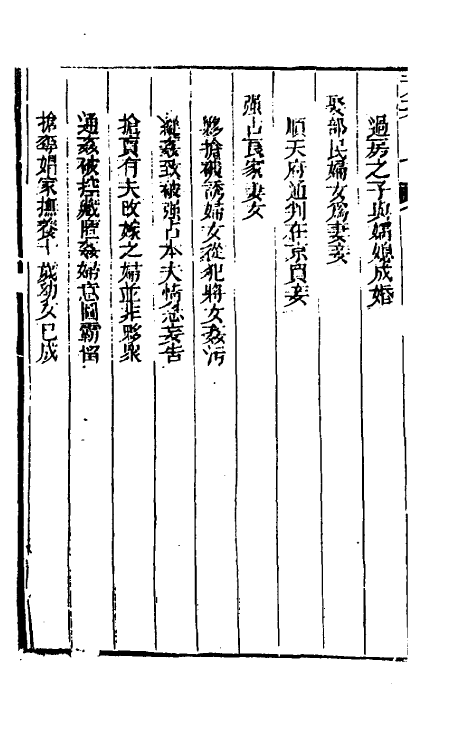 過房之子與嬸媳成婚
娶部民婦女為妻妾
順天府通判在京買妾
強占良家妻女
夥搶被誘婦女從犯將女姦污
縱姦致被強占本夫情急妄告
搶買有夫改嫁之婦並非夥眾
通姦被控藏匿姦婦意圖霸留
搶奪娼家撫養十歲幼女已成